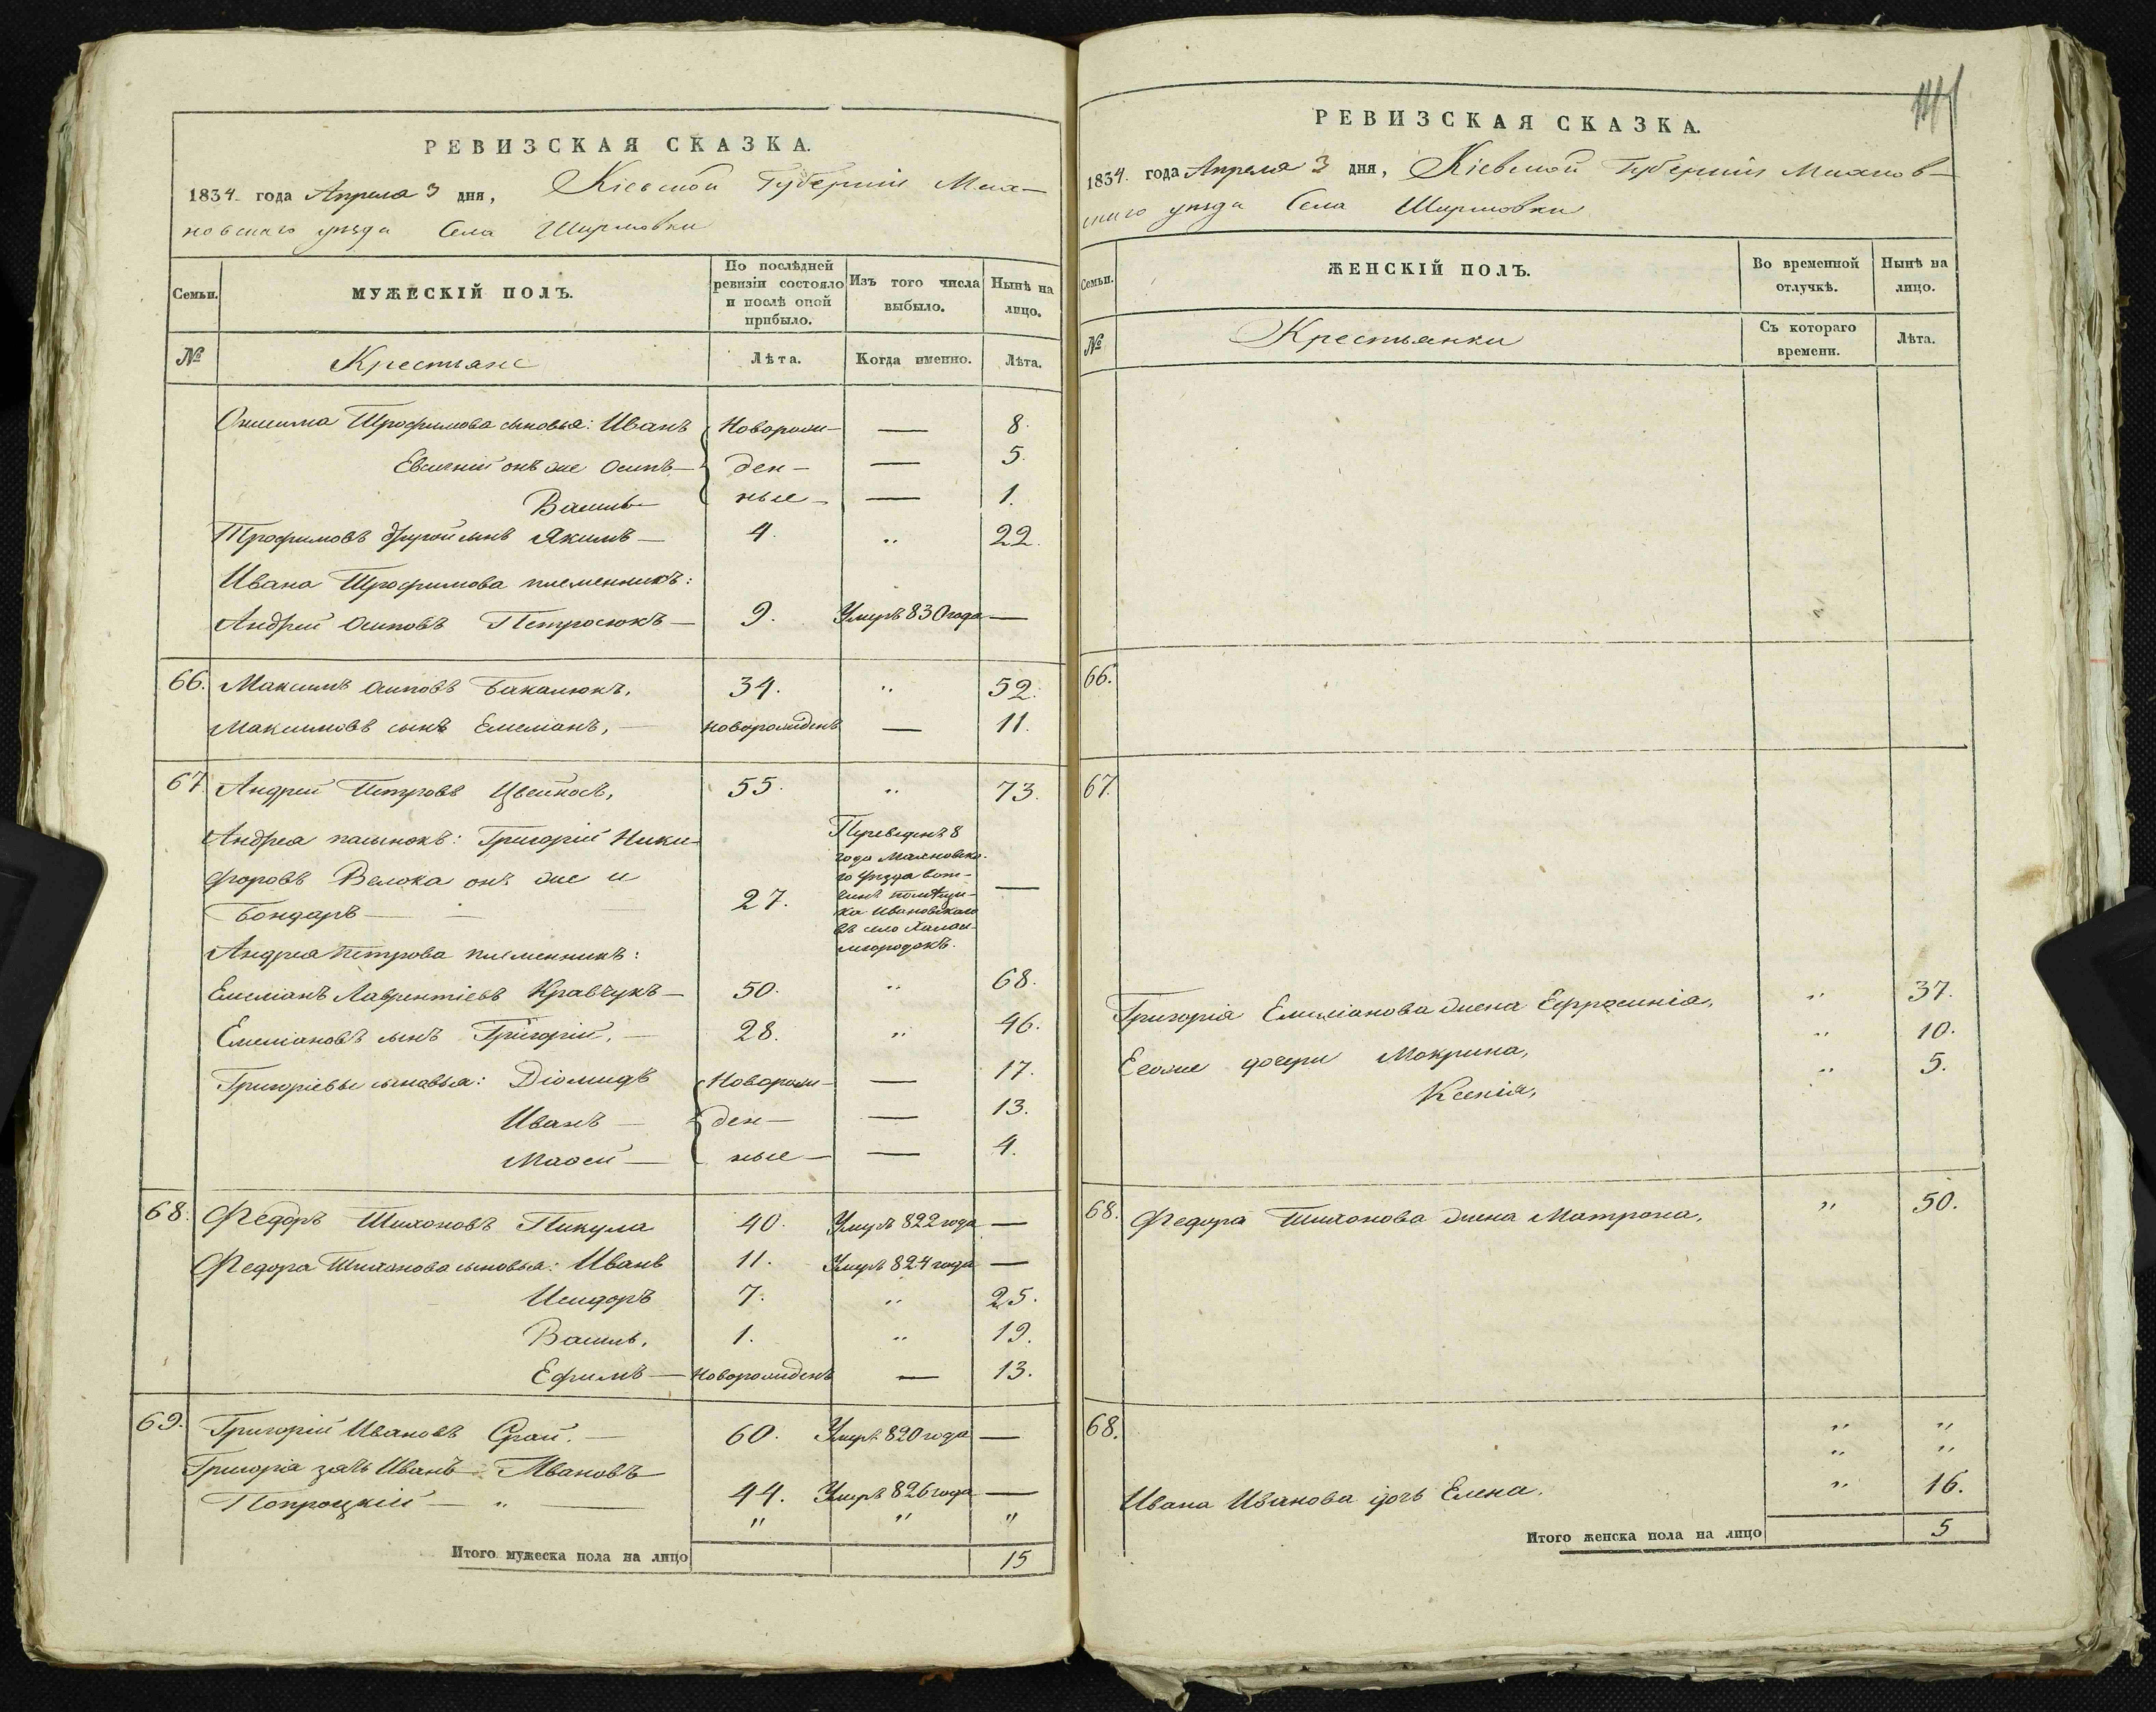 РЕВИЗСКАЯ СКАЗКА.
1834 года Апреля 3 дня, Кіевской Губерніи Мах-
новскаго уѣзда Села Ширмовки
Семьи. МУЖЕСКІЙ ПОЛЪ. По послѣдней ревизіи состояло и послѣ оной прибыло. Изъ того числа выбыло. Нынѣ на лицо.
№ Крестьяне Лѣта. Когда именно. Лѣта.
Трофимова сыновья: Иванъ Новорож- — 8.
онъ же Осипъ — ден- — 5.
Василь — ные — — 1.
Трофимовъ другой сынъ Якимъ — 4. " 22.
Ивана Трофимова племенникъ:
Андрей Осиповъ Петросюкъ — 9. Умеръ 830 года —
66. Максимъ Осиповъ Бакалюкъ, 34. " 52.
Максимовъ сынъ Емельянъ, — новорожденъ — 11.
67. Андрей Петровъ 55. " 73.
Андрея пасынокъ: Григорій Ники-
форовъ Велока онъ же и
Бондарь — 27. —
Переведенъ 8
года Махновска-
го уѣзда вот-
чинѣ помѣщи-
ка Ивановскаго
въ село
городокъ.
Андрея Петрова племенникъ:
Емеліанъ Лаврентіевъ Кравчукъ — 50. " 68.
Емеліановъ сынъ Григорій, — 28. " 46.
Григоріевы сыновья: Діомидъ Новорож- — 17.
Иванъ — ден- — 13.
Маѳей — ные — — 4.
68. Федоръ Тихоновъ Пикула 40. Умеръ 822 года —
Федора Тихонова сыновья: Иванъ 11. Умеръ 824 года —
Исидоръ 7. " 25.
Василь, 1. " 19.
Ефимъ — новорожденъ — 13.
69. Григорій Ивановъ — 60. Умеръ 820 года —
Григорія зять Иванъ Ивановъ
Попроцкій — " — 44. Умеръ 826 года —
" " "
Итого мужеска пола на лицо 15
РЕВИЗСКАЯ СКАЗКА.
1834 года Апреля 3 дня, Кіевской Губерніи Махнов-
скаго уѣзда Села Ширмовки
Семьи. ЖЕНСКІЙ ПОЛЪ. Во временной отлучкѣ. Нынѣ на лицо.
№ Крестьянки Съ котораго времени. Лѣта.
66.
67.
Григорія Емиліанова жена Ефросинія, " 37.
Егоже дочери Мокрина, " 10.
Ксенія, " 5.
68. Федора Тихонова жена Матрона, " 50.
68. " "
" "
Ивана Иванова дочь Елена. " 16.
Итого женска пола на лицо 5